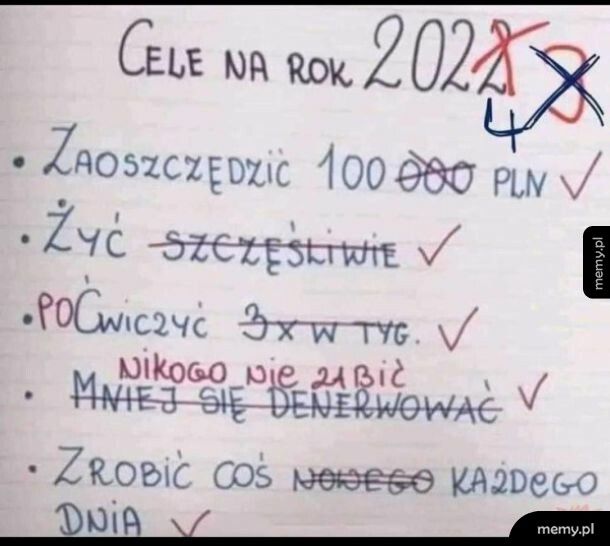 CELE NA ROK 2022 3 4
• ZAOSZCZĘDZIĆ 100 000 PLN ✓
• ŻYĆ SZCZĘŚLIWIE ✓
• POĆWICZYĆ 3 X W TYG. ✓
NIKOGO NIE ZABIĆ
• MNIEJ SIĘ DENERWOWAĆ ✓
• ZROBIĆ COŚ NOWEGO KAŻDEGO
DNIA ✓
memy.pl
memy.pl